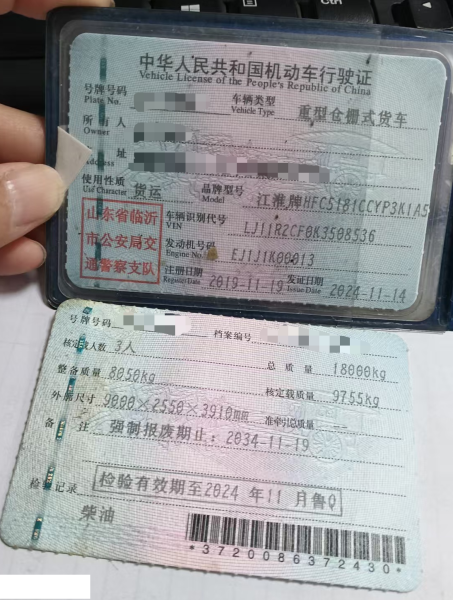 Ctrl
中华人民共和国机动车行驶证
Vehicle License of the People's Republic of China
号牌号码
Plate No.
车辆类型 重型仓栅式货车
Vehicle Type
所有人
Owner
址
Address
使用性质 货运
Use Character
品牌型号 江淮牌HFC5181CCYP3K1A5
Model
山东省临沂
市公安局交
通警察支队
车辆识别代号 LJ11R2CF0K3508536
VIN
发动机号码 EJ1J1K00013
Engine No.
注册日期 2019-11-19
Register Date
发证日期 2024-11-14
Issue Date
号牌号码
档案编号
核定载人数 3人
总质量 18000kg
整备质量 8050kg
核定载质量 9755kg
外廓尺寸 9000×2550×3910mm
准牵引总质量 --
备注 强制报废期止：2034-11-19
检验记录 检验有效期至2024 年11 月鲁Q
柴油
*3720086372430*